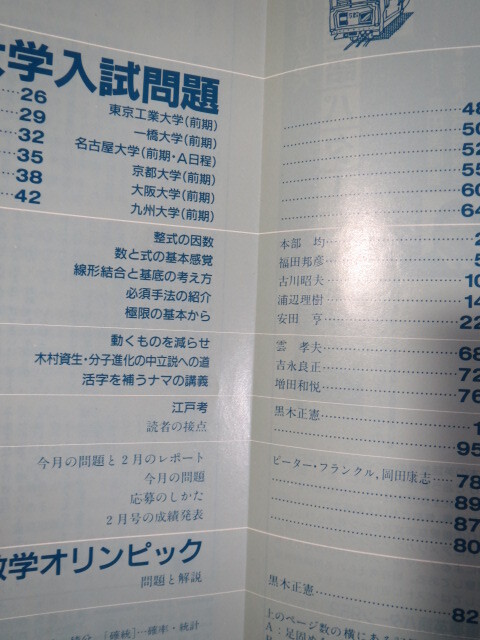 学入試問題
26 東京工業大学(前期) 48
29 一橋大学(前期) 50
32 名古屋大学(前期・A日程) 52
35 京都大学(前期) 55
38 大阪大学(前期) 60
42 九州大学(前期) 64
整式の因数 本部 均
数と式の基本感覚 福田邦彦
線形結合と基底の考え方 古川昭夫 10
必須手法の紹介 浦辺理樹 14
極限の基本から 安田 亨 22
動くものを減らせ 雲 孝夫 68
木村資生・分子進化の中立説への道 吉永良正 72
活字を補うナマの講義 増田和悦 76
江戸考 黒木正憲 1
読者の接点 95
今月の問題と2月のレポート ピーター・フランクル,岡田康志 78
今月の問題 89
応募のしかた 87
2月号の成績発表 80
数学オリンピック
問題と解説 黒木正憲 82
上のページ数の横にある
[確統]…確率・統計